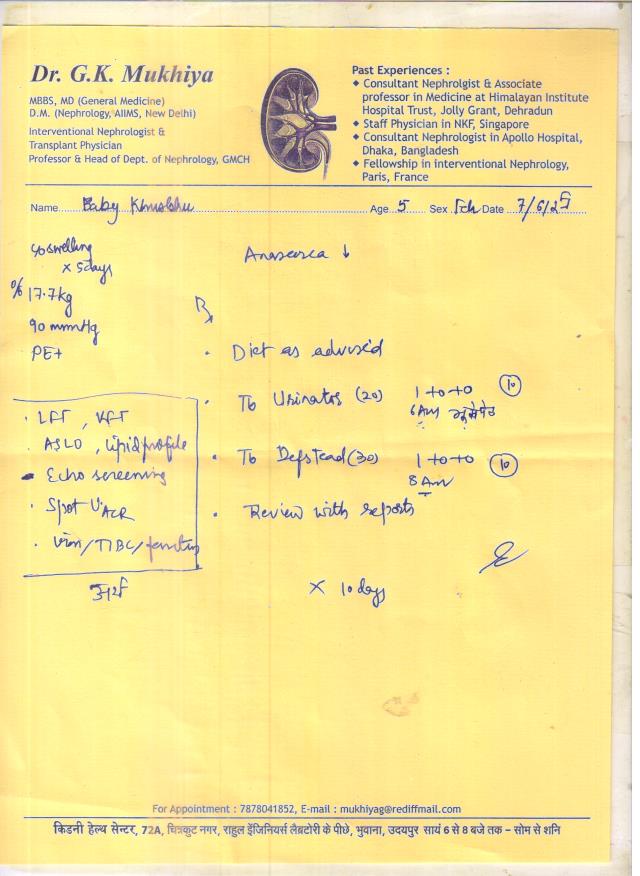 Dr. G.K. Mukhiya
MBBS, MD (General Medicine)
D.M. (Nephrology, AIIMS, New Delhi)
Interventional Nephrologist &
Transplant Physician
Professor & Head of Dept. of Nephrology, GMCH
Past Experiences :
◆ Consultant Nephrolgist & Associate
professor in Medicine at Himalayan Institute
Hospital Trust, Jolly Grant, Dehradun
◆ Staff Physician in NKF, Singapore
◆ Consultant Nephrologist in Apollo Hospital,
Dhaka, Bangladesh
◆ Fellowship in interventional Nephrology,
Paris, France
Name Baby Khusbhu Age 5 Sex Fch Date 7/6/25
swelling
x 5days
17.7kg
90 mmHg
PE+
· LFT, KFT
ASLO, Lipid profile
- Echo screening
· Spot UACR
· /TIBC/
Anasarca ↓
Rx
· Diet as advised
· Tb (20) 1+0+0 (10)
6Am
· Tb (30) 1+0+0 (10)
8Am
· Review with reports
x 10 days
For Appointment : 7878041852, E-mail : mukhiyag@rediffmail.com
किडनी हेल्थ सेन्टर, 72A, चित्रकुट नगर, राहुल इंजिनियर्स लैब्रटोरी के पीछे, भुवाना, उदयपुर सायं 6 से 8 बजे तक – सोम से शनि